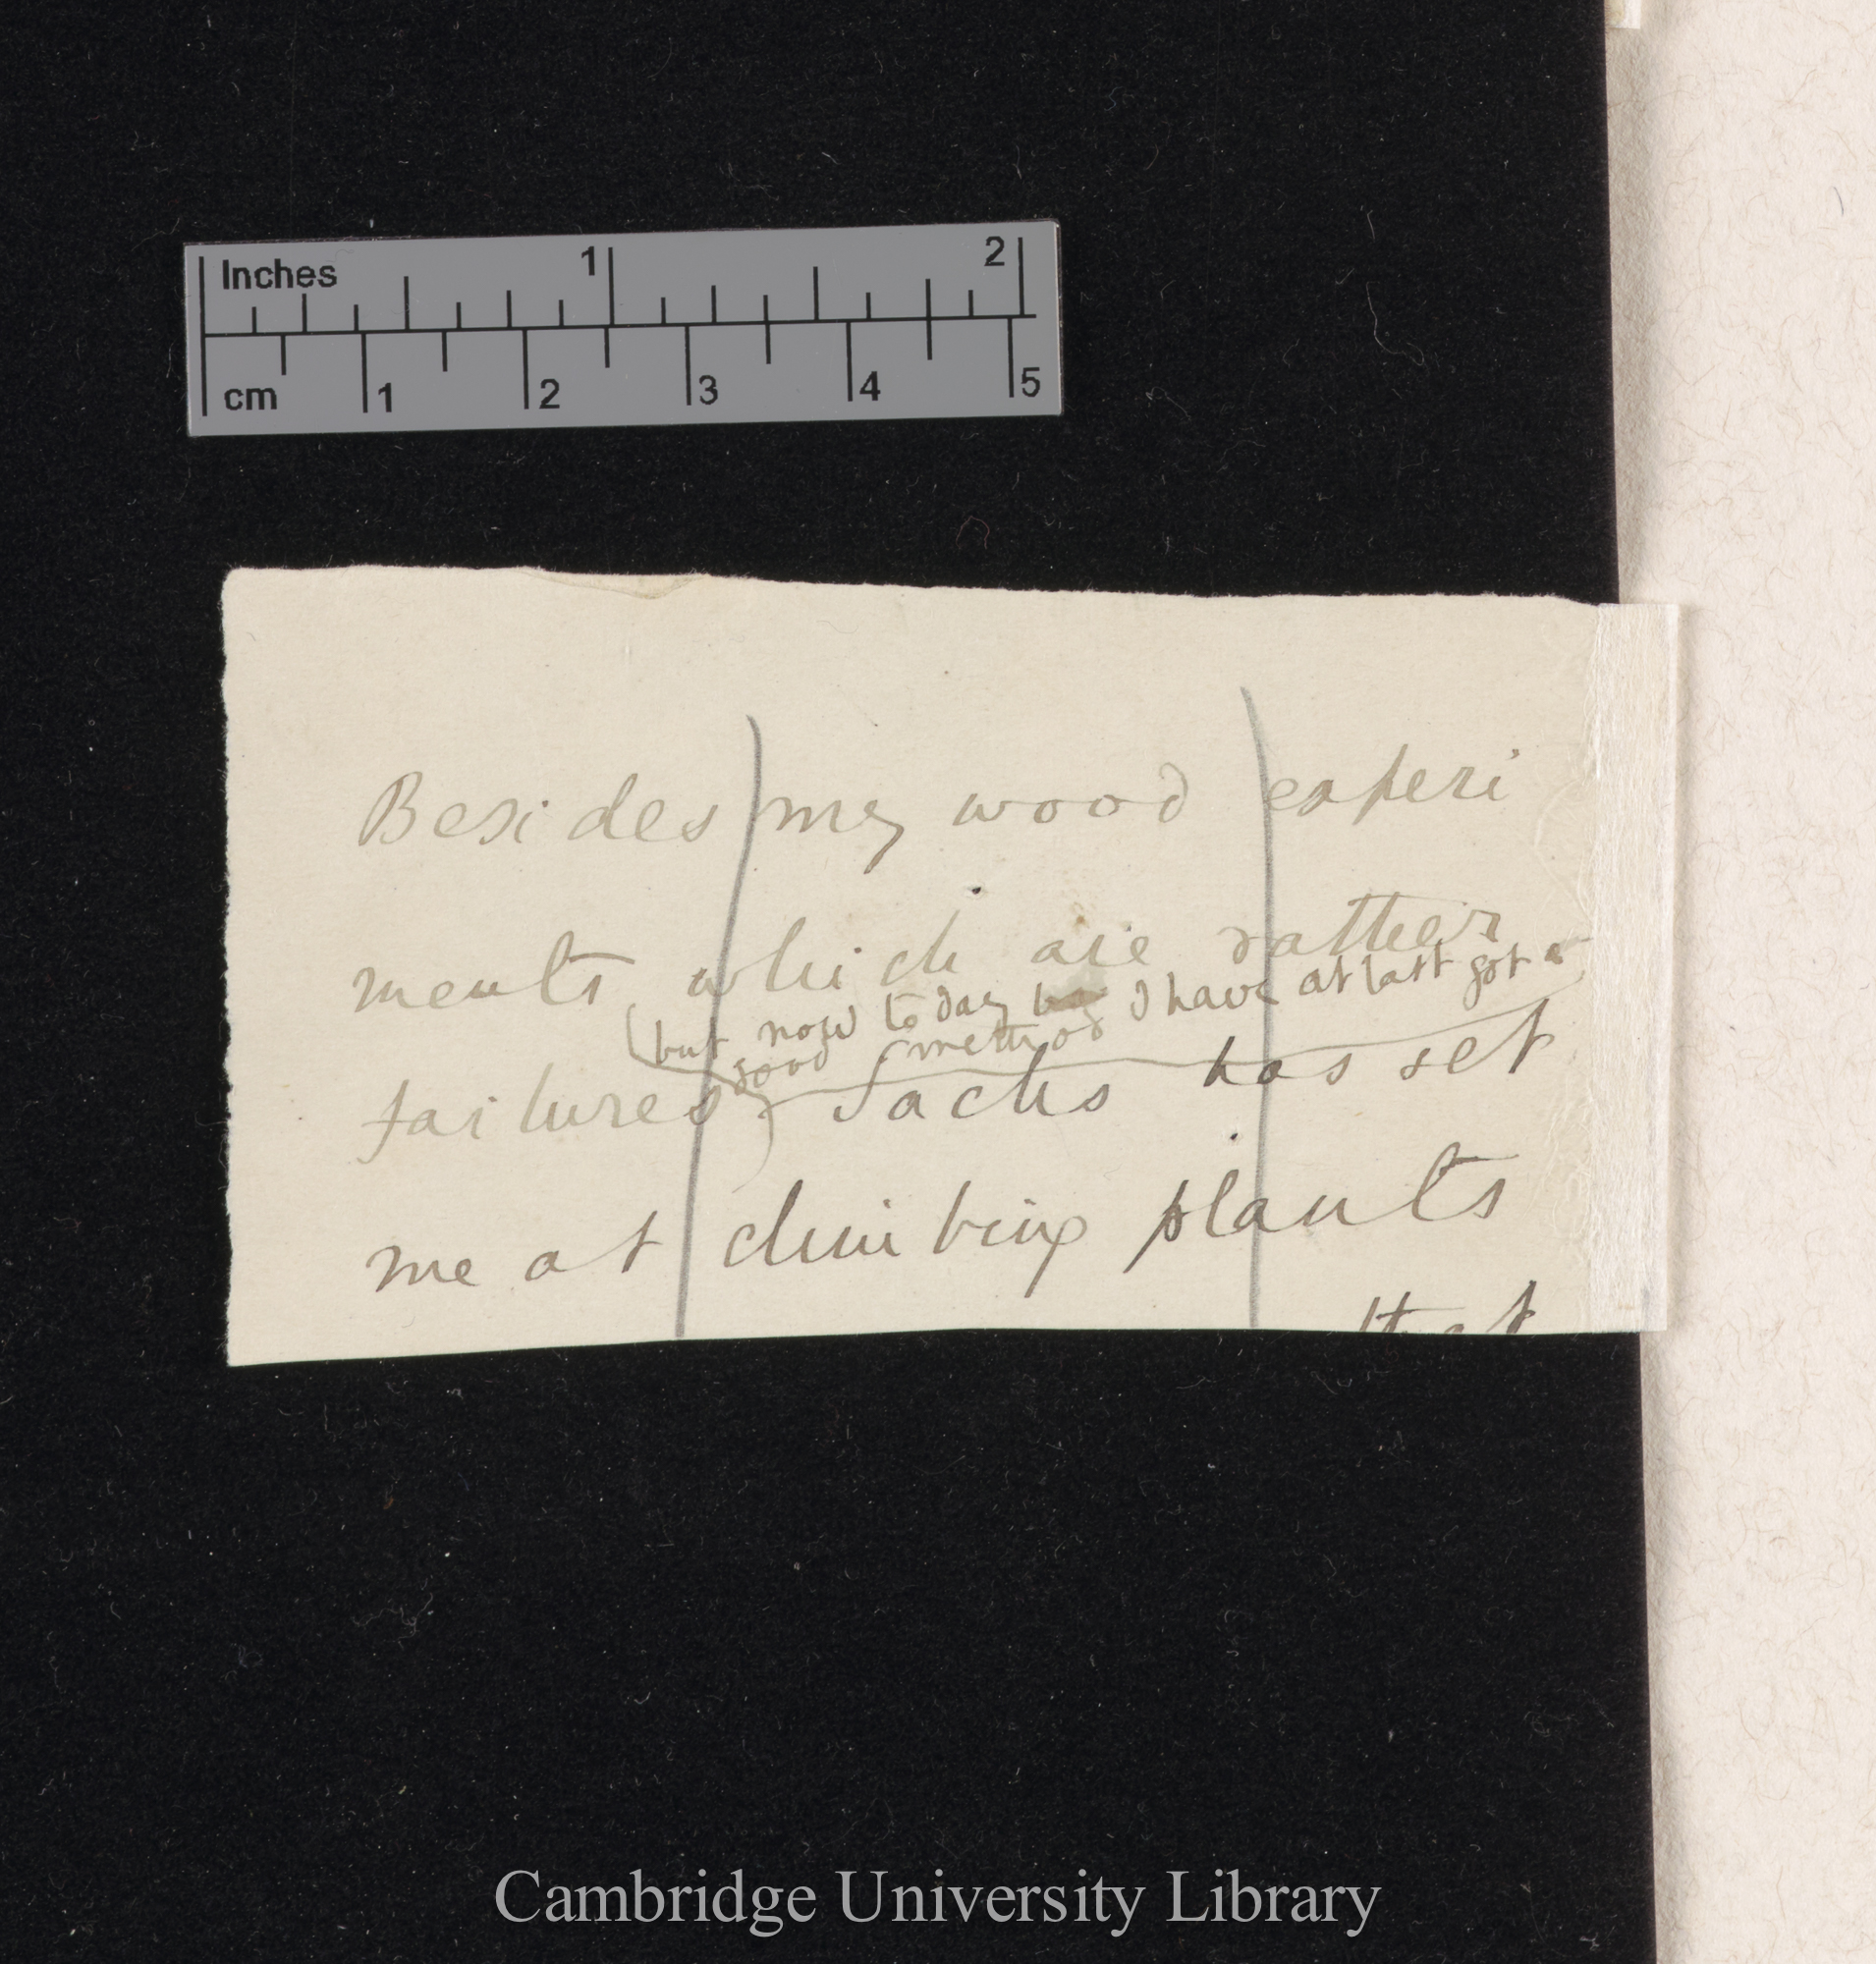 Inches 1 2
cm 1 2 3 4 5
Besides my wood experi
ments which are rather
(but now today I have at last got a
good method)
failures Sachs has set
me at climbing plants
that
Cambridge University Library